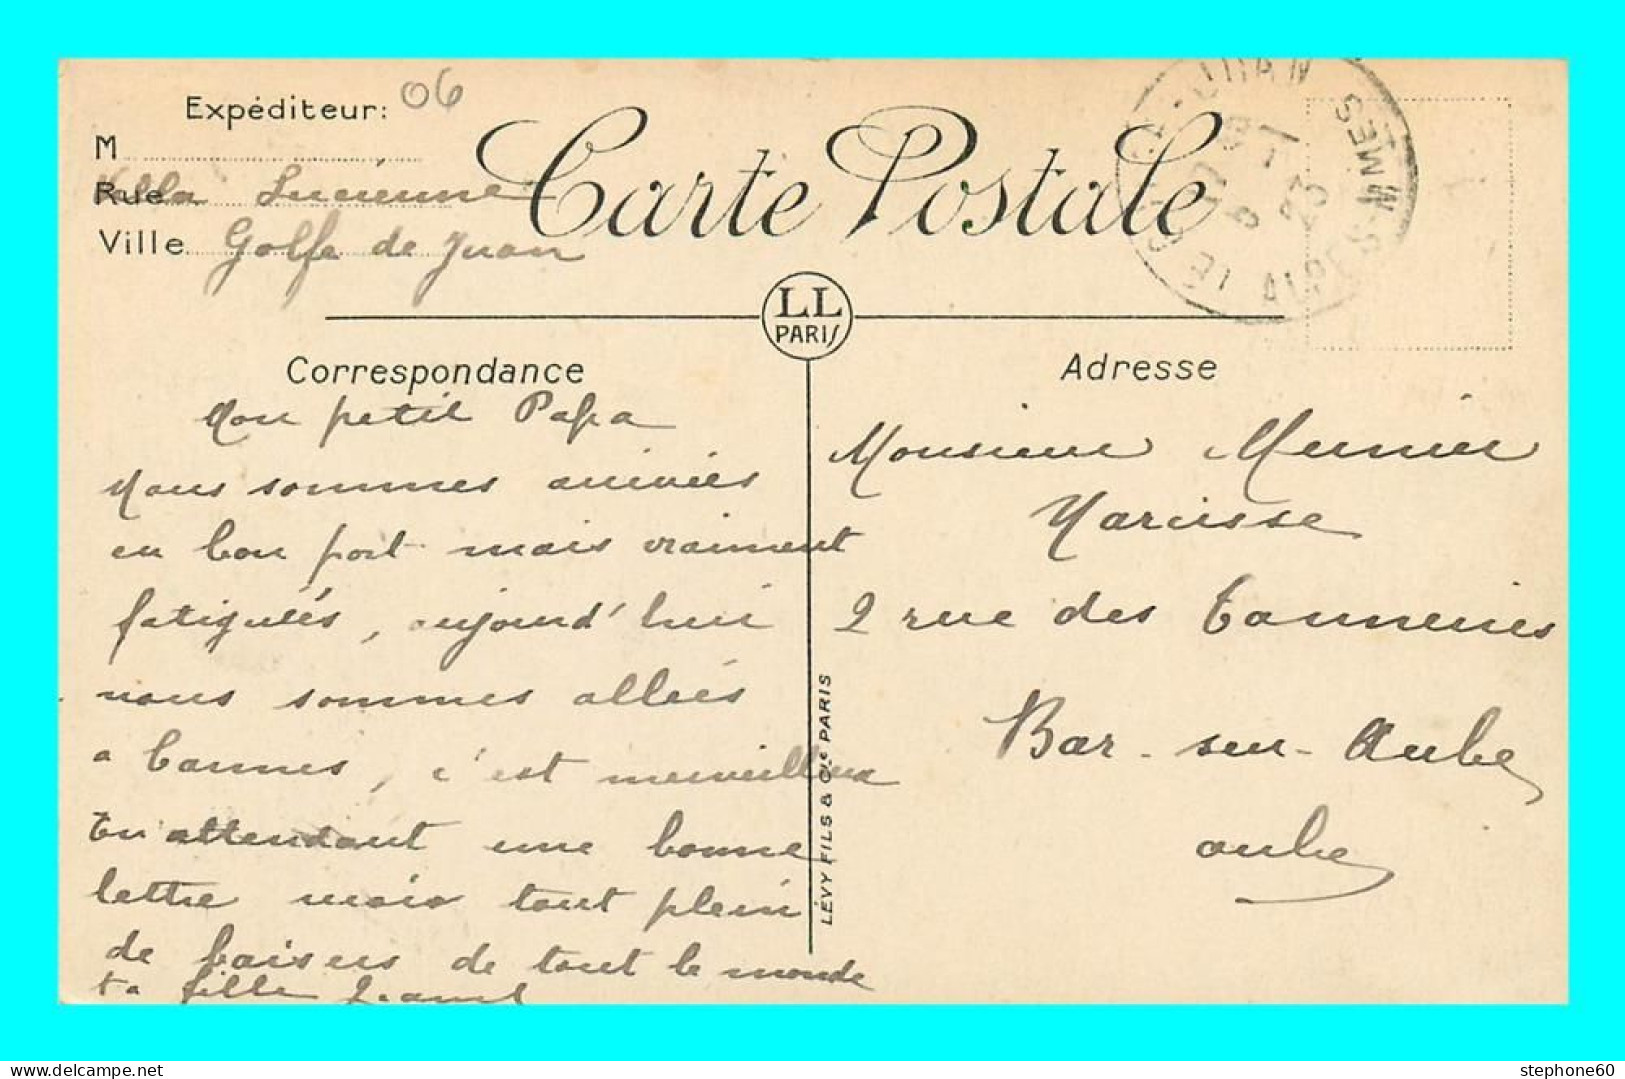 Expéditeur: 06
M
Rue Villa Lucienne
Ville Golfe de Juan
Carte Postale
LE GOLFE-JUAN
5 -1
23
ALPES-MMES
LL
PARIS
Correspondance
Mon petit Papa
Nous sommes arrivés
en bon port mais vraiment
fatigués, aujourd'hui
nous sommes allées
a Cannes, c'est merveilleux
En attendant une bonne
lettre mais tout plein
de baisers de tout le monde
ta fille
LÉVY FILS & Cie PARIS
Adresse
Monsieur Meunier
Narcisse
2 rue des Tanneries
Bar-sur-Aube
aube
stephone60